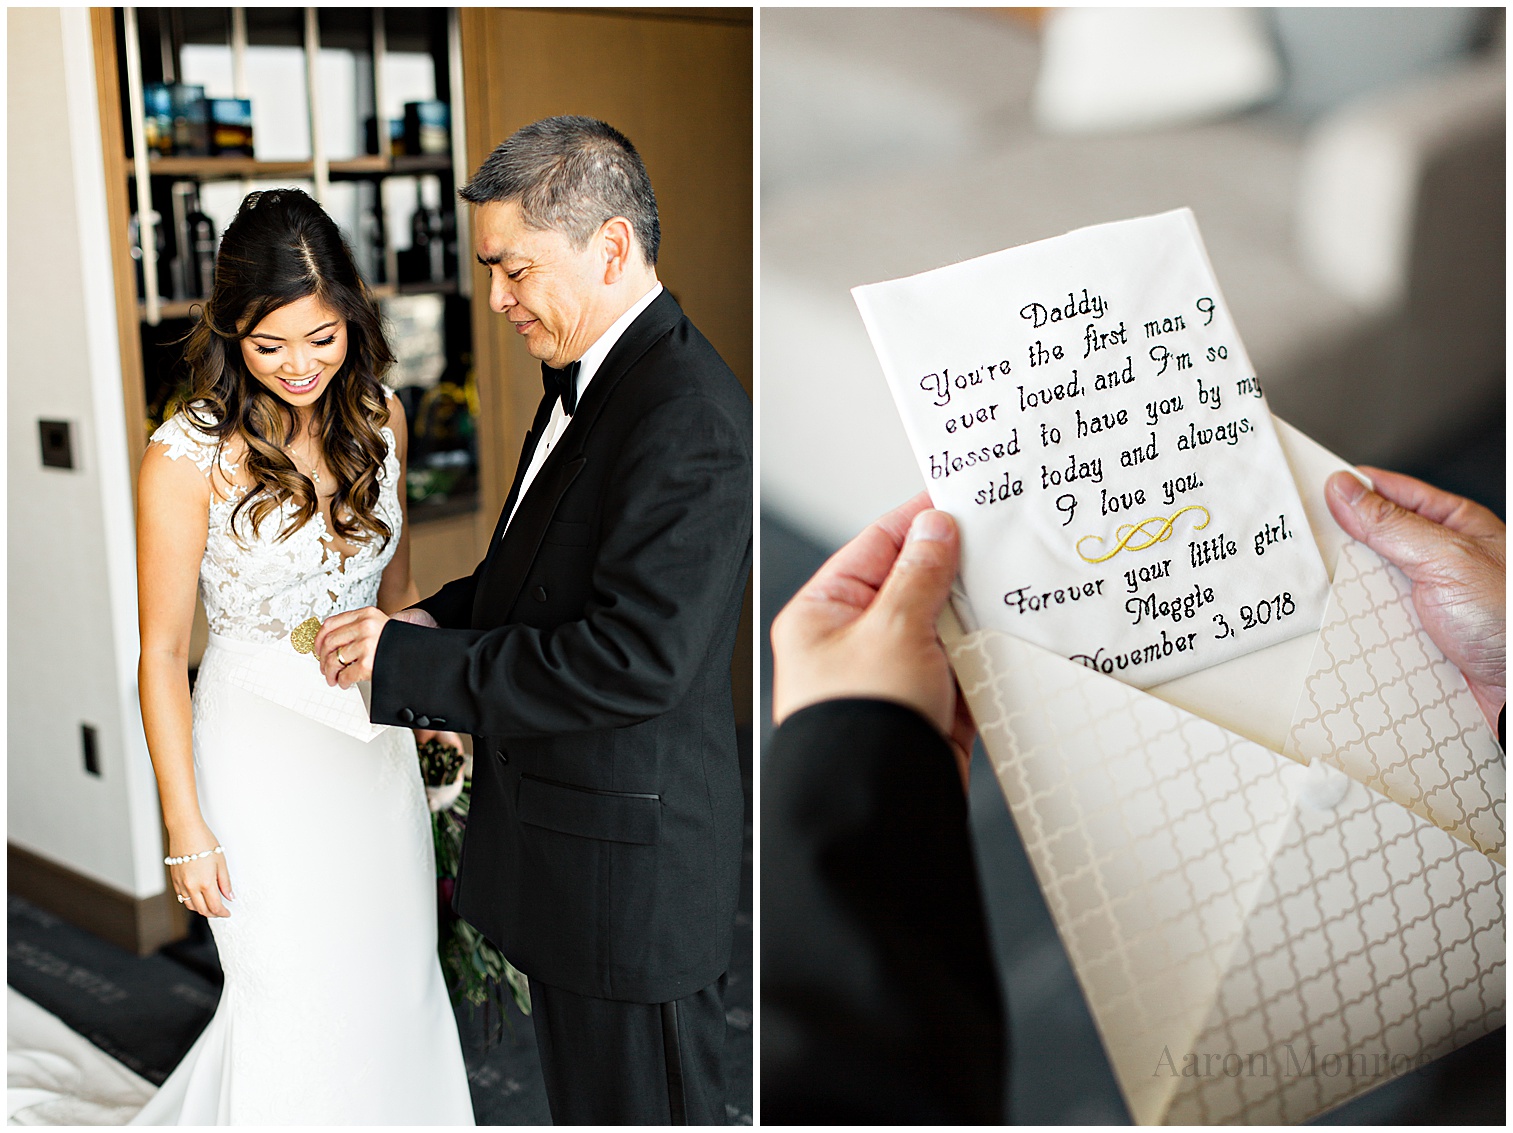 Daddy,
You're the first man I
ever loved, and I'm so
blessed to have you by my
side today and always.
I love you.
Forever your little girl,
Meggie
November 3, 2018
Aaron Monroe